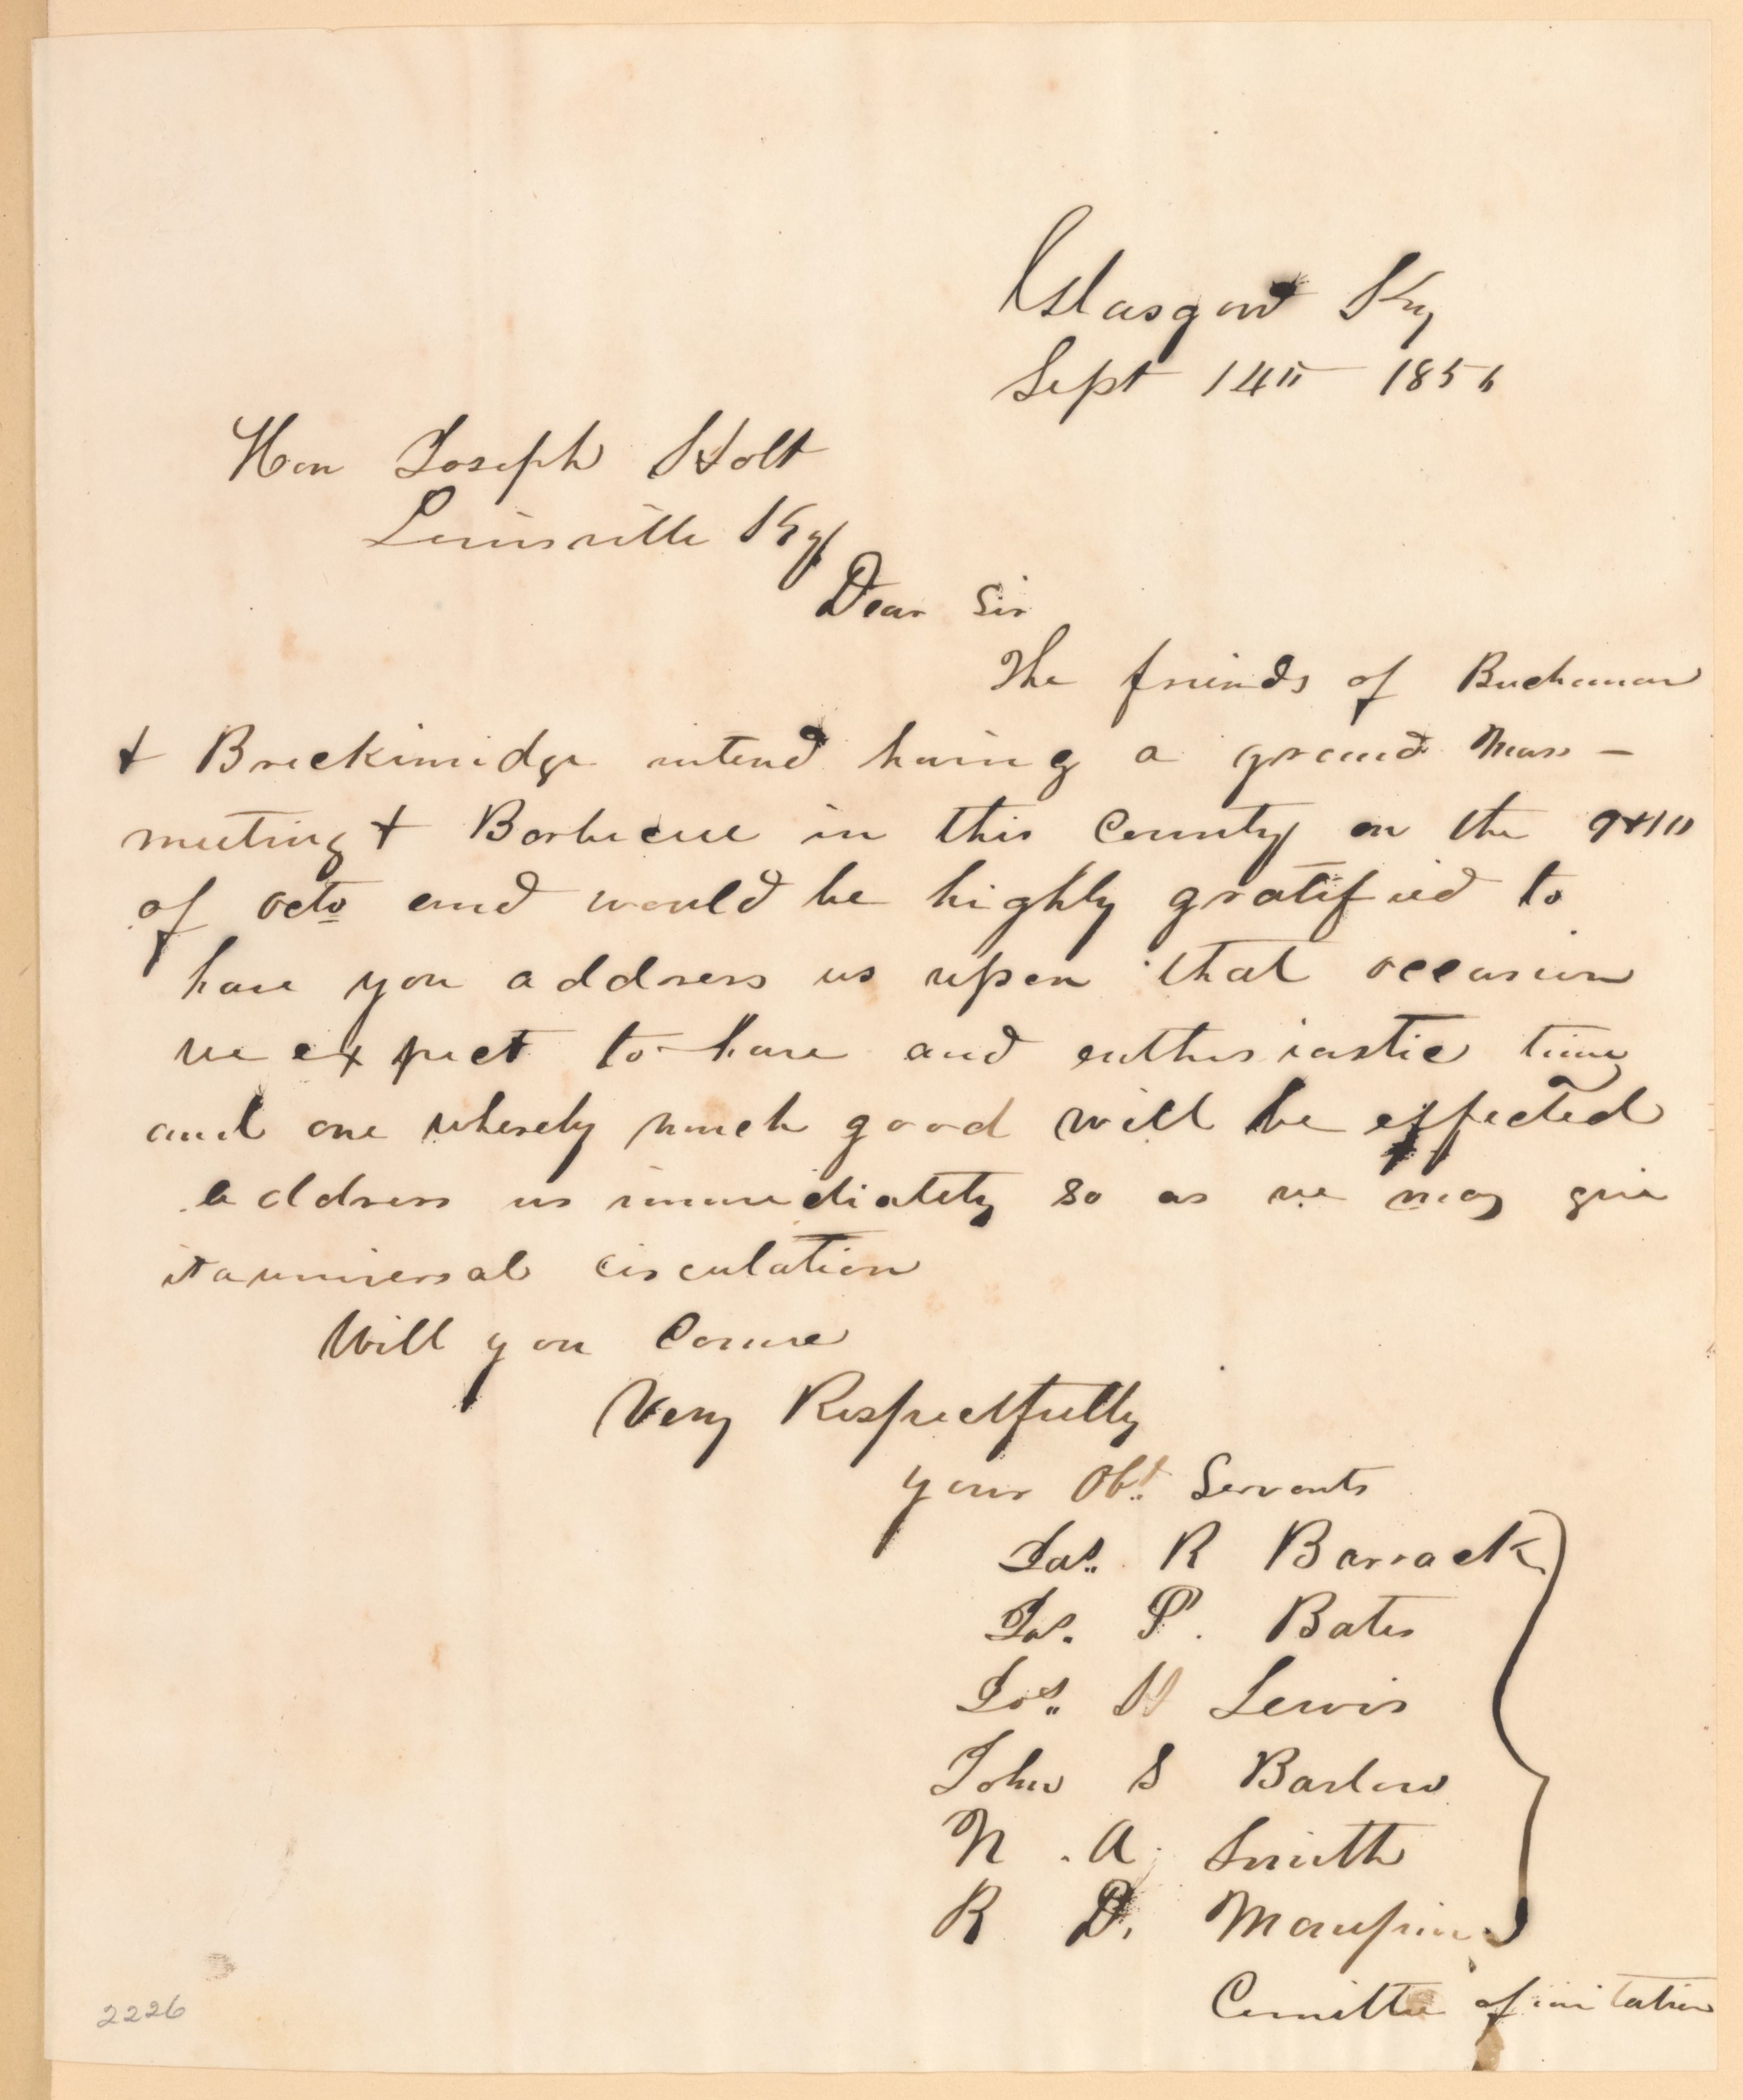 Glasgow Ky
Sept 14th 1856
Hon Joseph Holt
Louisville Ky
Dear Sir
The friends of Buchanan
& Breckinridge intend having a grand Mass-
meeting & Barbecue in this County on the 9th & 10
of octo and would be highly gratified to
have you address us upon that occasion
we expect to have and enthusiastic time
and one whereby much good will be effected
address us immediately so as we may give
it a universal circulation
Will you Come
Very Respectfully
your Obt. Servants
Jas. R Barrack
Jas. P. Bates
Jos. H Lewis
John S Barlow
N. A. Smith
R D. Maupin
Comittee of invitation
2226